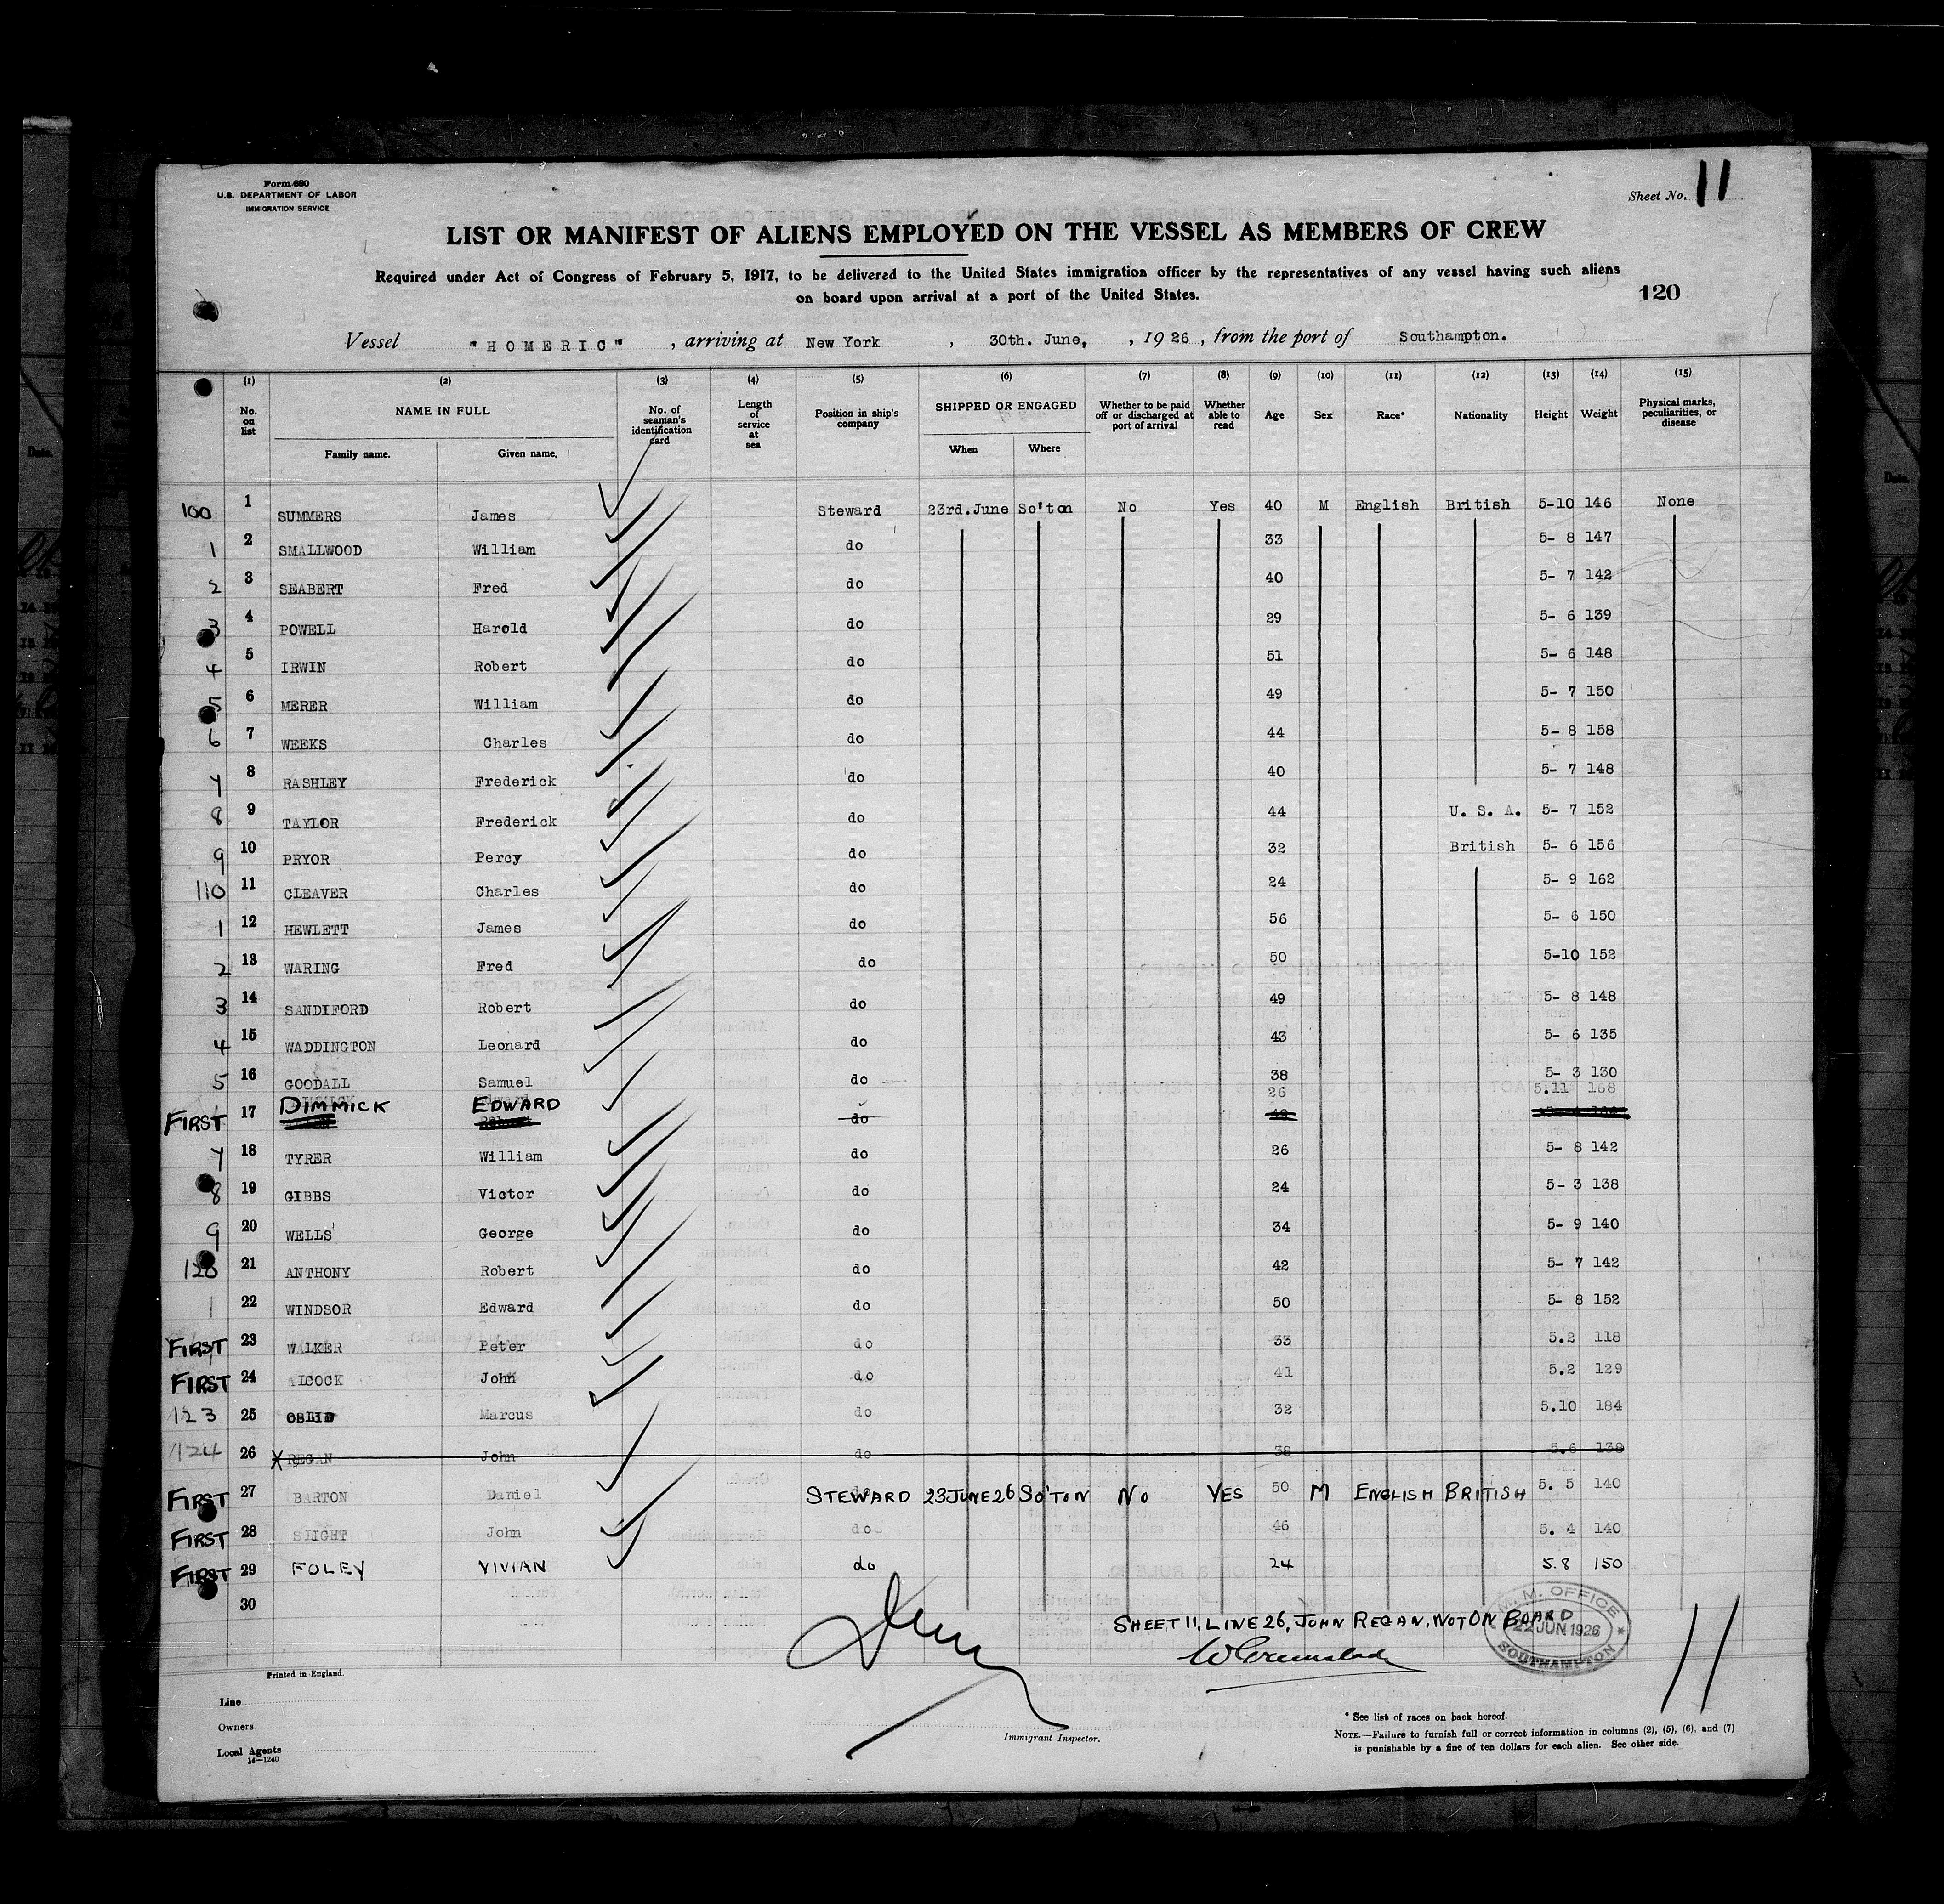 Form 680
U.S. DEPARTMENT OF LABOR
IMMIGRATION SERVICE
Sheet No. 11
LIST OR MANIFEST OF ALIENS EMPLOYED ON THE VESSEL AS MEMBERS OF CREW
Required under Act of Congress of February 5, 1917, to be delivered to the United States immigration officer by the representatives of any vessel having such aliens
on board upon arrival at a port of the United States.
120
Vessel "HOMERIC" , arriving at New York , 30th. June, , 1926 , from the port of Southampton.
(1) (2) (3) (4) (5) (6) (7) (8) (9) (10) (11) (12) (13) (14) (15)
No. on list NAME IN FULL Family name. Given name. No. of seaman's identification card Length of service at sea Position in ship's company SHIPPED OR ENGAGED When Where Whether to be paid off or discharged at port of arrival Whether able to read Age Sex Race* Nationality Height Weight Physical marks, peculiarities, or disease
100 1 SUMMERS James Steward 23rd.June So'ton No Yes 40 M English British 5-10 146 None
1 2 SMALLWOOD William do 33 5- 8 147
2 3 SEABERT Fred do 40 5- 7 142
3 4 POWELL Harold do 29 5- 6 139
4 5 IRWIN Robert do 51 5- 6 148
5 6 MERER William do 49 5- 7 150
6 7 WEEKS Charles do 44 5- 8 158
7 8 RASHLEY Frederick do 40 5- 7 148
8 9 TAYLOR Frederick do 44 U. S. A. 5- 7 152
9 10 PRYOR Percy do 32 British 5- 6 156
110 11 CLEAVER Charles do 24 5- 9 162
1 12 HEWLETT James do 56 5- 6 150
2 13 WARING Fred do 50 5-10 152
3 14 SANDIFORD Robert do 49 5- 8 148
4 15 WADDINGTON Leonard do 43 5- 6 135
5 16 GOODALL Samuel do 38 5- 3 130
FIRST 17 DIMMICK EDWARD do 26 5.11 168
7 18 TYRER William do 26 5- 8 142
8 19 GIBBS Victor do 24 5- 3 138
9 20 WELLS George do 34 5- 9 140
120 21 ANTHONY Robert do 42 5- 7 142
1 22 WINDSOR Edward do 50 5- 8 152
FIRST 23 WALKER Peter do 33 5.2 118
FIRST 24 ALCOCK John do 41 5.2 129
123 25 Marcus do 32 5.10 184
124 26 X REGAN John do 38 5.6 138
FIRST 27 BARTON Daniel STEWARD 23JUNE26 SO'TON NO YES 50 M ENGLISH BRITISH 5. 5 140
FIRST 28 SLIGHT John do 46 5. 4 140
FIRST 29 FOLEY VIVIAN do 24 5.8 150
30
SHEET 11, LINE 26, JOHN REGAN, NOT ON BOARD
M.M. OFFICE
22 JUN 1926
SOUTHAMPTON
11
Printed in England.
Line
Owners
Local Agents
14-1240
Immigrant Inspector.
* See list of races on back hereof.
NOTE.—Failure to furnish full or correct information in columns (2), (5), (6), and (7)
is punishable by a fine of ten dollars for each alien. See other side.